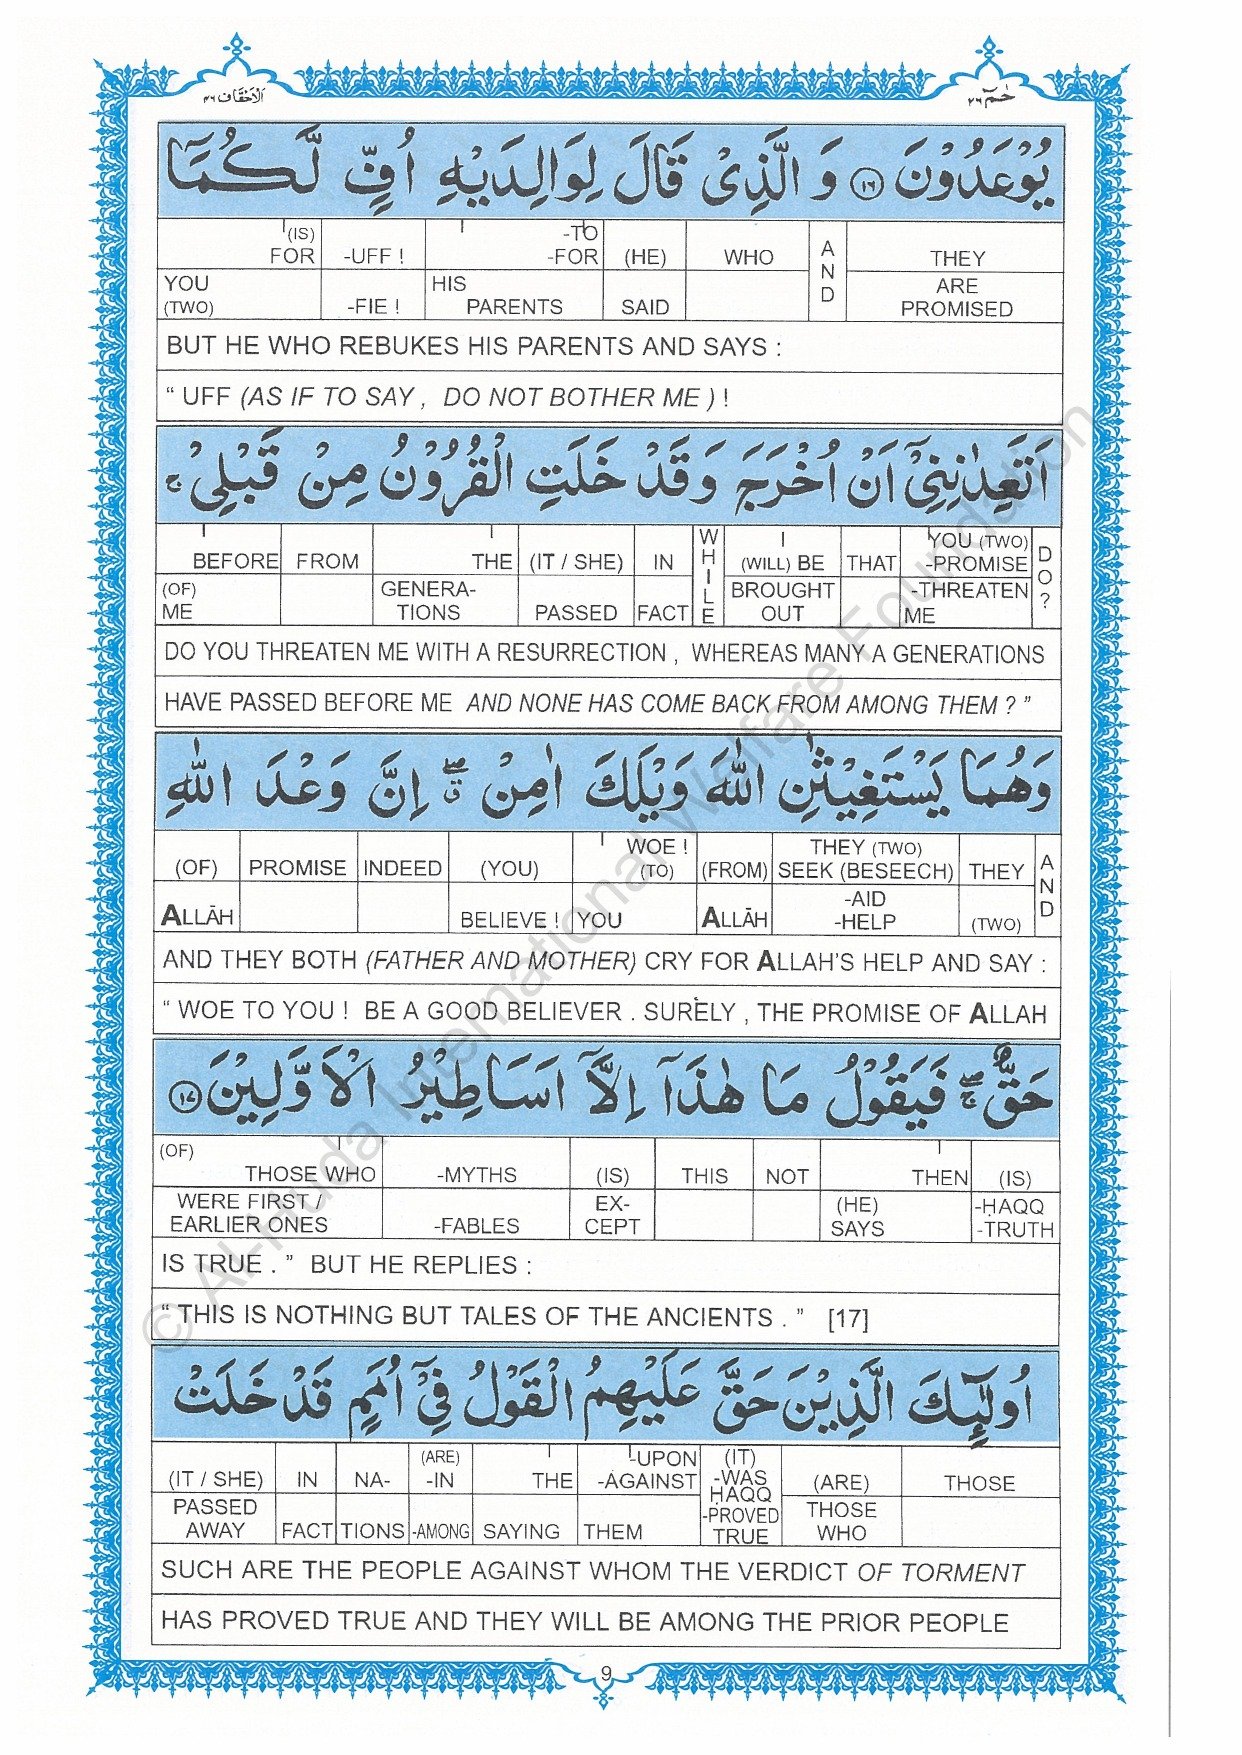 الاحقاف ٤٦
حٰمٓ ٢٦
يُوْعَدُوْنَ ١٦ وَ الَّذِىْ قَالَ لِوَالِدَيْهِ اُفٍّ لَّكُمَاۤ
(IS) FOR -UFF ! -TO -FOR (HE) WHO AND THEY
YOU (TWO) -FIE ! HIS PARENTS SAID ARE PROMISED
BUT HE WHO REBUKES HIS PARENTS AND SAYS :
“ UFF (AS IF TO SAY , DO NOT BOTHER ME ) !
اَتَعِدٰنِنِىْۤ اَنْ اُخْرَجَ وَ قَدْ خَلَتِ الْقُرُوْنُ مِنْ قَبْلِىْ ۚ
BEFORE FROM THE (IT / SHE) IN WHILE I (WILL) BE THAT YOU (TWO) -PROMISE DO?
(OF) ME GENERA- TIONS PASSED FACT BROUGHT OUT -THREATEN ME
DO YOU THREATEN ME WITH A RESURRECTION , WHEREAS MANY A GENERATIONS
HAVE PASSED BEFORE ME AND NONE HAS COME BACK FROM AMONG THEM ? ”
وَهُمَا يَسْتَغِيْثٰنِ اللّٰهَ وَيْلَكَ اٰمِنْ ۖ ق اِنَّ وَعْدَ اللّٰهِ
(OF) PROMISE INDEED (YOU) WOE ! (TO) (FROM) THEY (TWO) SEEK (BESEECH) THEY AND
ALLĀH BELIEVE ! YOU ALLĀH -AID -HELP (TWO)
AND THEY BOTH (FATHER AND MOTHER) CRY FOR ALLAH’S HELP AND SAY :
“ WOE TO YOU ! BE A GOOD BELIEVER . SURELY , THE PROMISE OF ALLAH
حَقٌّ ۖۚ فَيَقُوْلُ مَا هٰذَاۤ اِلَّاۤ اَسَاطِيْرُ الْاَوَّلِيْنَ ١٧
(OF) THOSE WHO -MYTHS (IS) THIS NOT THEN (IS)
WERE FIRST / EARLIER ONES -FABLES EX- CEPT (HE) SAYS -ḤAQQ -TRUTH
IS TRUE . ” BUT HE REPLIES :
“ THIS IS NOTHING BUT TALES OF THE ANCIENTS . ” [17]
اُولٰٓئِكَ الَّذِيْنَ حَقَّ عَلَيْهِمُ الْقَوْلُ فِىْۤ اُمَمٍ قَدْ خَلَتْ
(IT / SHE) IN NA- (ARE) -IN THE -UPON -AGAINST (IT) -WAS ḤAQQ (ARE) THOSE
PASSED AWAY FACT TIONS -AMONG SAYING THEM -PROVED TRUE THOSE WHO
SUCH ARE THE PEOPLE AGAINST WHOM THE VERDICT OF TORMENT
HAS PROVED TRUE AND THEY WILL BE AMONG THE PRIOR PEOPLE
9
© Al-Huda International Welfare Foundation